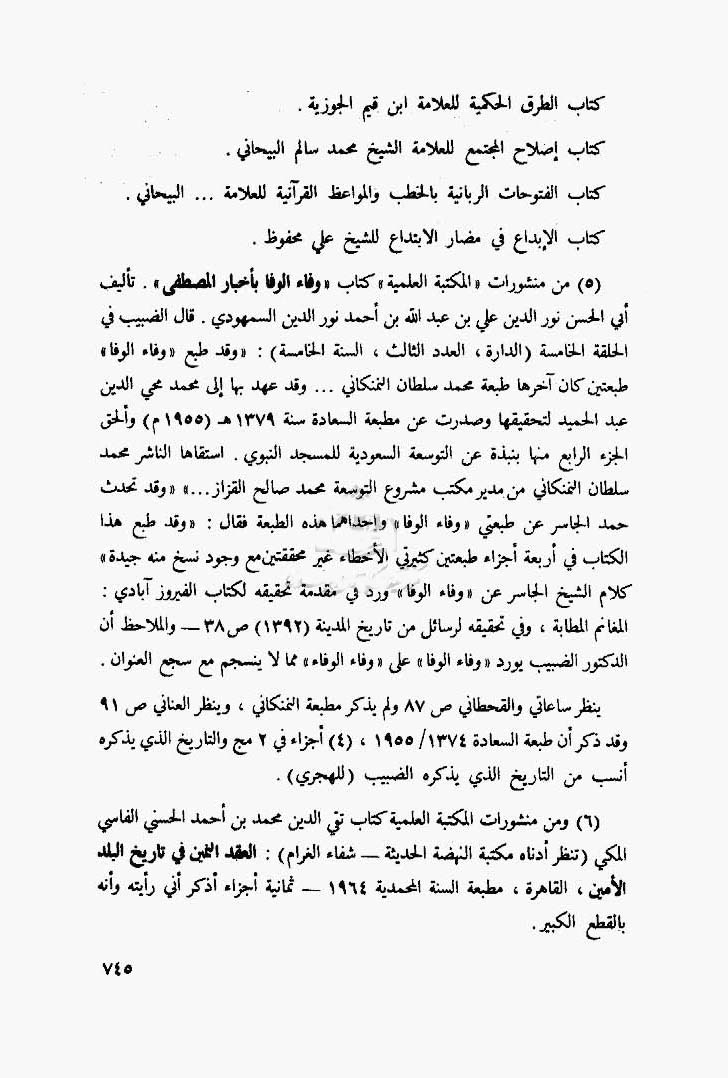 كتاب الطرق الحكمية للعلامة ابن قيم الجوزية .
كتاب إصلاح المجتمع للعلامة الشيخ محمد سالم البيحاني .
كتاب الفتوحات الربانية بالخطب والمواعظ القرآنية للعلامة ... البيحاني .
كتاب الإبداع في مضار الابتداع للشيخ علي محفوظ .
(٥) من منشورات «المكتبة العلمية» كتاب «وفاء الوفا بأخبار المصطفى» . تأليف
أبي الحسن نور الدين علي بن عبد الله بن أحمد نور الدين السمهودي . قال الضبيب في
الحلقة الخامسة (الدارة ، العدد الثالث ، السنة الخامسة) : «وقد طبع «وفاء الوفا»
طبعتين كان آخرها طبعة محمد سلطان النمنكاني ... وقد عهد بها إلى محمد محي الدين
عبد الحميد لتحقيقها وصدرت عن مطبعة السعادة سنة ١٣٧٩ هـ (١٩٥٥ م) وألحق
الجزء الرابع منها بنبذة عن التوسعة السعودية للمسجد النبوي . استقاها الناشر محمد
سلطان النمنكاني من مدير مكتب مشروع التوسعة محمد صالح القزاز...» «وقد تحدث
حمد الجاسر عن طبعتي «وفاء الوفا» وإحداهما هذه الطبعة فقال : «وقد طبع هذا
الكتاب في أربعة أجزاء طبعتين كثيرتي الأخطاء غير محققتين مع وجود نسخ منه جيدة»
كلام الشيخ الجاسر عن «وفاء الوفا» ورد في مقدمة تحقيقه لكتاب الفيروز آبادي :
المغانم المطابة ، وفي تحقيقه لرسائل من تاريخ المدينة (١٣٩٢) ص ٣٨ — والملاحظ أن
الدكتور الضبيب يورد «وفاء الوفا» على «وفاء الوفاء» مما لا ينسجم مع سجع العنوان .
ينظر ساعاتي والقحطاني ص ٨٧ ولم يذكر مطبعة النمنكاني ، وينظر العناني ص ٩١
وقد ذكر أن طبعة السعادة ١٣٧٤ / ١٩٥٥ ، (٤) أجزاء في ٢ مج والتاريخ الذي يذكره
أنسب من التاريخ الذي يذكره الضبيب (للهجري) .
(٦) ومن منشورات المكتبة العلمية كتاب تقي الدين محمد بن أحمد الحسني الفاسي
المكي (تنظر أدناه مكتبة النهضة الحديثة — شفاء الغرام) : العقد الثمين في تاريخ البلد
الأمين ، القاهرة ، مطبعة السنة المحمدية ١٩٦٤ — ثمانية أجزاء أذكر أني رأيته وأنه
بالقطع الكبير .
٧٤٥